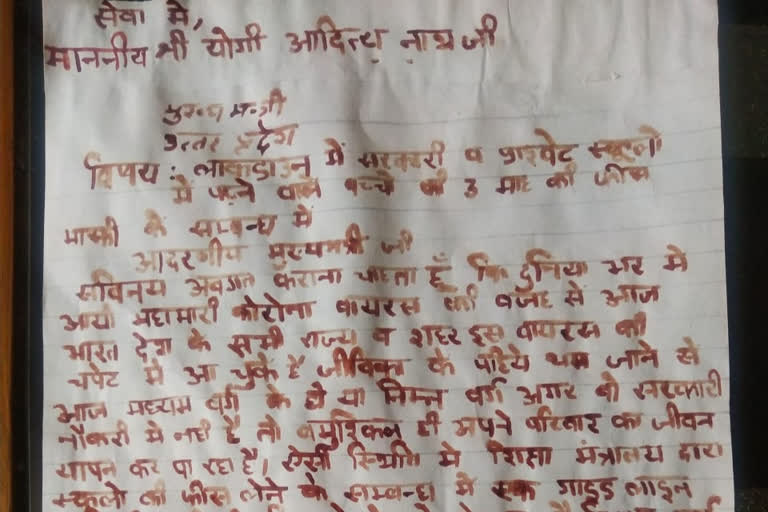 सेवा में,
माननीय श्री योगी आदित्य नाथ जी
मुख्य मन्त्री
उत्तर प्रदेश
विषय : लाकडाउन में सरकारी व प्राइवेट स्कूलो
में पढने वाले बच्चो की 3 माह की फीस
माफी के सम्बन्ध में
आदरणीय मुख्यमंत्री जी
सविनय अवगत कराना चाहता हूँ कि दुनिया भर मे
आयी महामारी कोरोना वायरस की वजह से आज
भारत देश के सभी राज्य व शहर इस वायरस की
चपेट में आ चुके है जीविका के पहिये थम जाने से
आज मध्यम वर्ग के हो या निम्न वर्ग अगर वो सरकारी
नौकरी मे नही है तो बमुश्किल ही अपने परिवार का जीवन
यापन कर पा रहा है। ऐसी स्थिति मे शिक्षा मंत्रालय द्वारा
स्कूलो की फीस लेने के सम्बन्ध में एक गाइड लाइन